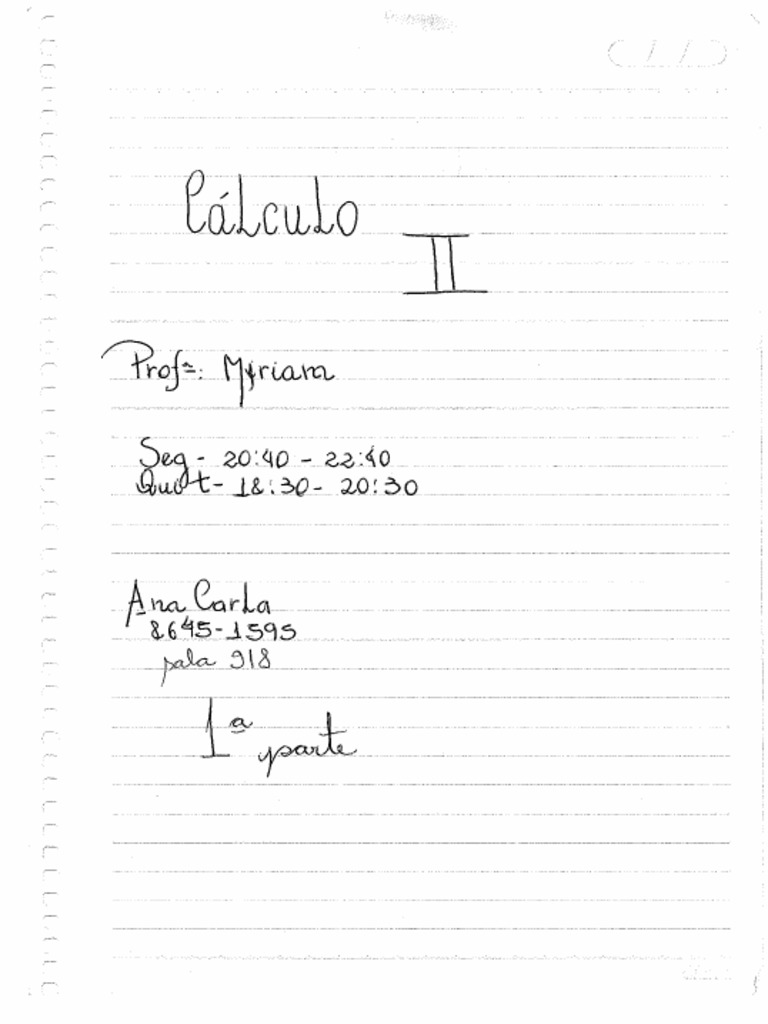 Cálculo
II
Profª: Myriam
Seg - 20:40 - 22:40
Quart - 18:30 - 20:30
Ana Carla
8645-1595
sala 918
1ª
parte